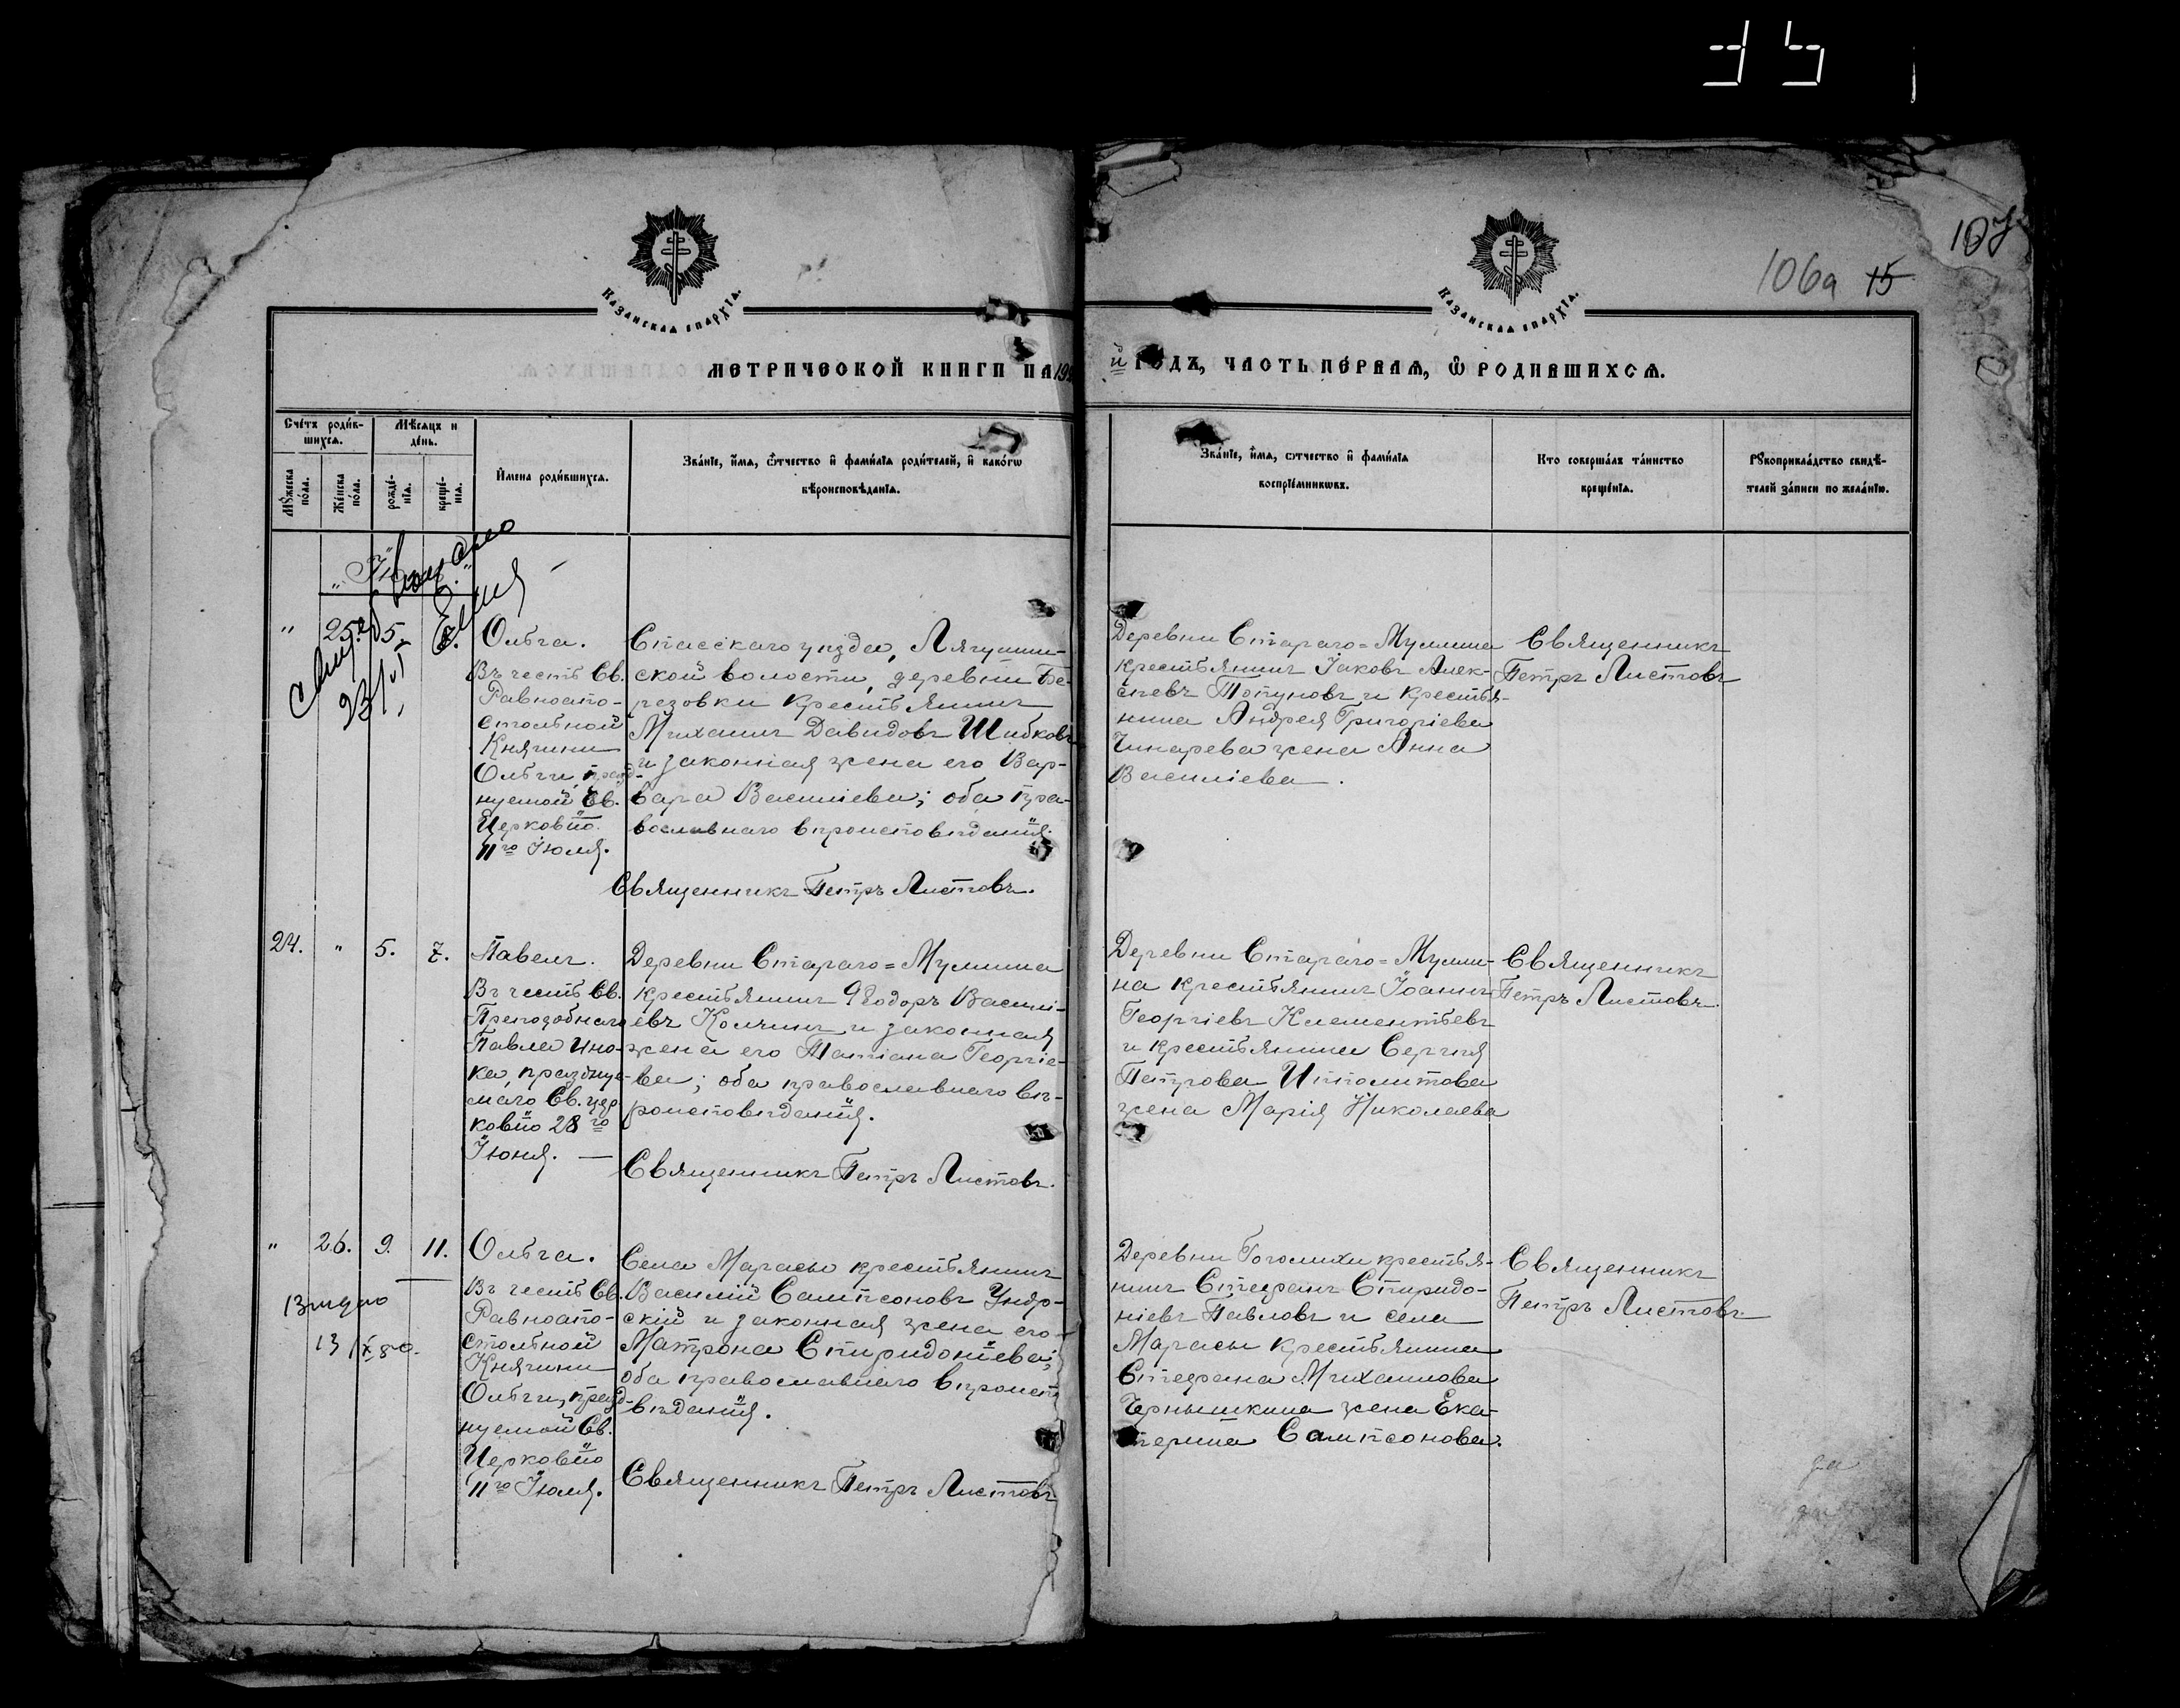 107
106а 15
Казанская епархїѧ.
Казанская епархїѧ.
МЕТРИЧЕСКОЙ КНИГИ НА 19
й ГОДЪ, ЧАСТЬ ПЕРВАѦ, Ѽ РОДИВШИХСѦ.
Сче́тъ роди́в-
шихсѧ.
Мѣ́сѧцъ и
де́нь.
Мꙋ́жеска
по́ла.
Же́нска
по́ла.
рожде́-
нїѧ.
креще́-
нїѧ.
И́мена роди́вшихсѧ.
Зва́нїе, и́мѧ, ѻ́тчество и҆ фами́лїѧ роди́телей, и҆ како́гѡ
вѣроисповѣ́данїѧ.
Зва́нїе, и́мѧ, ѻ́тчество и҆ фами́лїѧ
воспрїе́мникѡвъ.
Кто соверша́лъ та́инство
креще́нїѧ.
Рꙋкоприкла́дство свидѣ́-
телей за́писи по жела́нїю.
" 25. 5. 6.
Ольга.
Въ честь Св.
Равноапо-
стольной
Княгини
Ольги, празд-
нуемой Св.
Церковію
11го Іюля.
Спасскаго уѣзда,
ской волости, деревни Бе-
резовки крестьянинъ
Михаилъ Давидовъ Шибковъ
и законная жена его Вар-
вара Васильева; оба пра-
вославнаго вѣроисповѣданія.
Священникъ Петръ Листовъ.
Деревни Стараго=Мулина
крестьянинъ Іаковъ Алек-
сѣевъ Топуновъ и крестья-
нина Андрея Григоріева
Чинарева жена Анна
Василіева.
Священникъ
Петръ Листовъ
24. " 5. 7.
Павелъ.
Въ честь Св.
Преподобнаго
Павла ино-
ка, празднуе-
маго Св. цер
ковію 28го
Іюня. —
Деревни Стараго=Мулина
крестьянинъ Ѳеодоръ Василі-
евъ Колчинъ и законная
жена его Татіана Георгіе-
ва; оба православнаго вѣ-
роисповѣданія.
Священникъ Петръ Листовъ.
Деревни Стараго=Мули-
на крестьянинъ Іоаннъ
Георгіевъ Клементьевъ
и крестьянина Сергія
Петрова Ипполитова
жена Марія Николаева
Священникъ
Петръ Листовъ.
" 26. 9. 11.
13/IX 80.
Ольга.
Въ честь Св.
Равноапо-
стольной
Княгини
Ольги, празд-
нуемой Св.
Церковію
11го Іюля.
Села Марасы крестьянинъ
Василій Сампсоновъ Ундор-
скій и законная жена его
Матрона Спиридоніева;
оба православнаго вѣроиспо
вѣданія.
Священникъ Петръ Листовъ
Деревни Гоголихи крестья-
нинъ Стефанъ Спиридо-
ніевъ Павловъ и села
Марасы крестьянина
Стефана Михаилова
Чернышкина жена Ека-
терина Сампсонова.
Священникъ
Петръ Листовъ